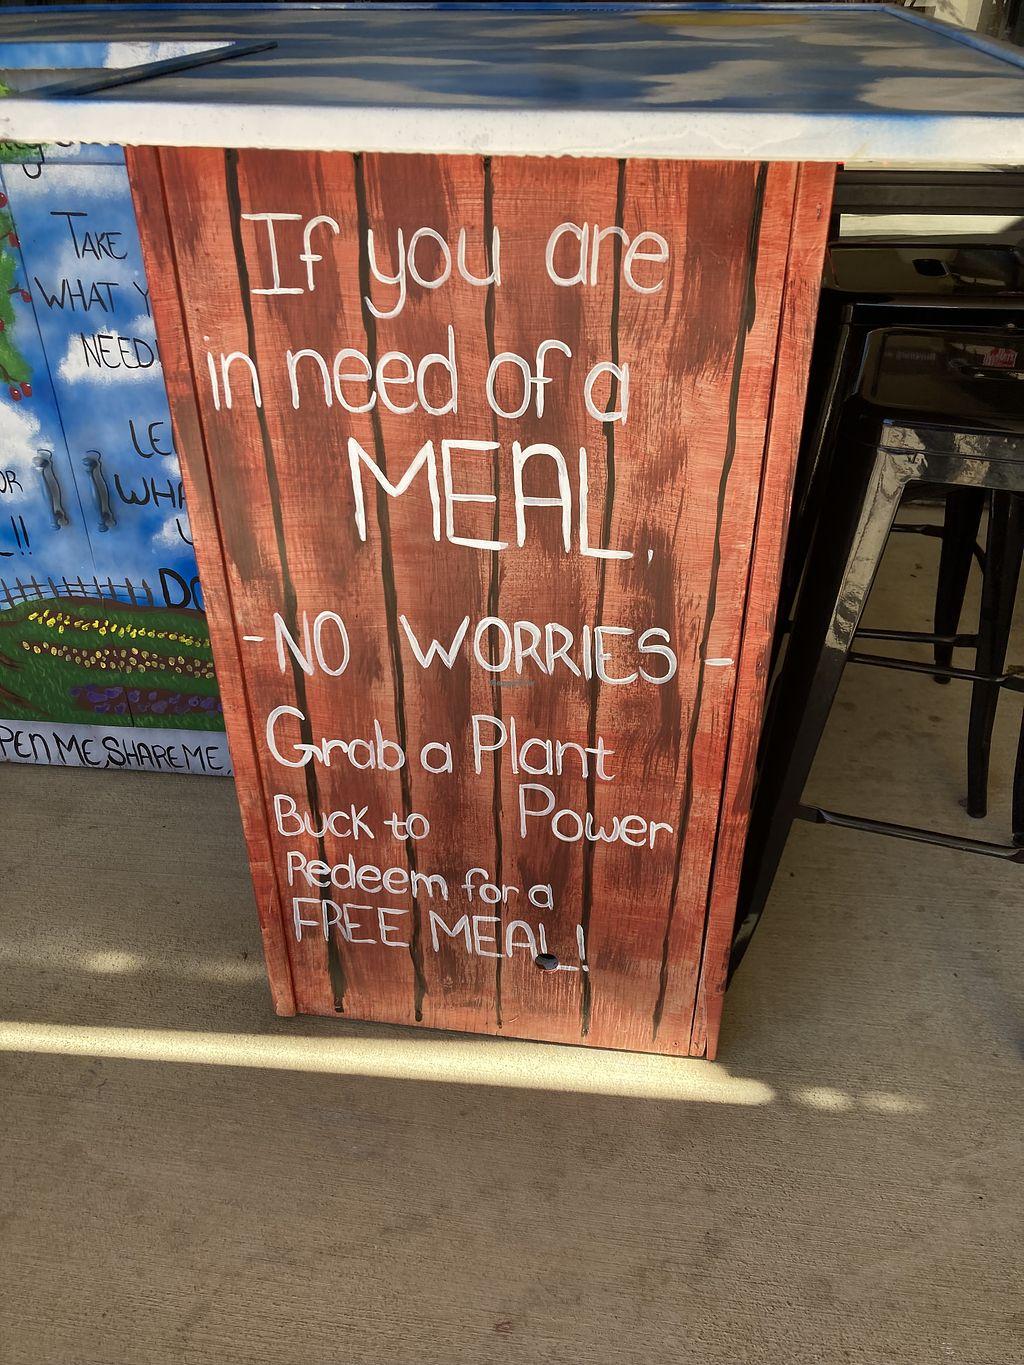 If you are
in need of a
MEAL.
-NO WORRIES-
Grab a Plant
Buck to Power
Redeem for a
FREE MEAL!
TAKE
WHAT
NEED
DO
ME, SHARE ME,